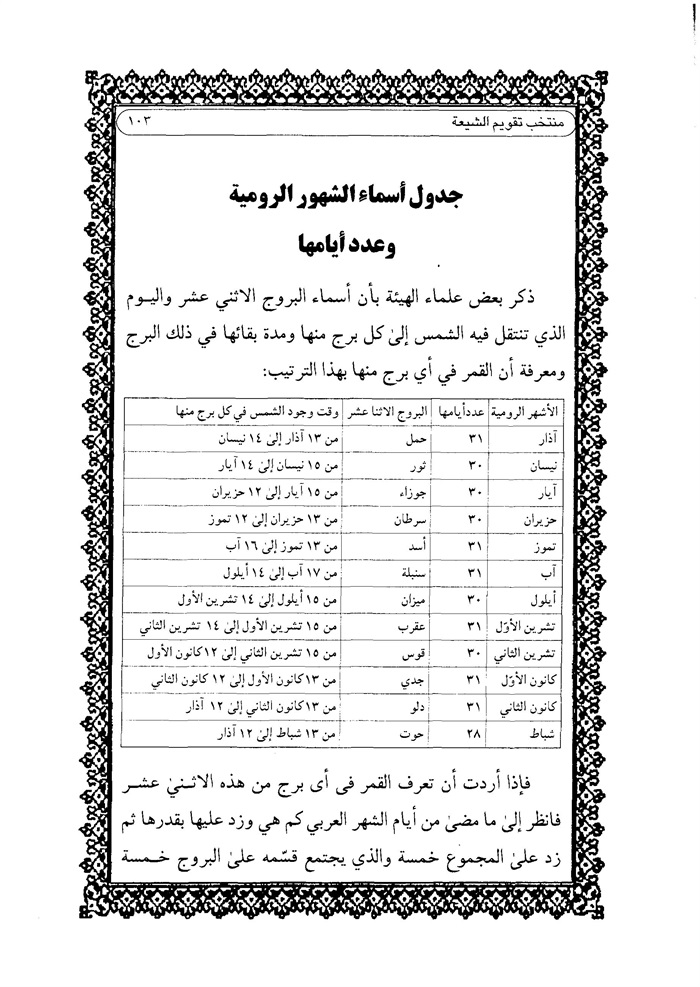 منتخب تقويم الشيعة ١٠٣
جدول أسماء الشهور الرومية
وعدد أيامها
ذكر بعض علماء الهيئة بأن أسماء البروج الاثني عشر واليوم
الذي تنتقل فيه الشمس إلىٰ كل برج منها ومدة بقائها في ذلك البرج
ومعرفة أن القمر في أي برج منها بهذا الترتيب:
الأشهر الرومية عدد أيامها البروج الاثنا عشر وقت وجود الشمس في كل برج منها
آذار ٣١ حمل من ١٣ آذار إلىٰ ١٤ نيسان
نيسان ٣٠ ثور من ١٥ نيسان إلىٰ ١٤ آيار
آيار ٣٠ جوزاء من ١٥ آيار إلىٰ ١٢ حزيران
حزيران ٣٠ سرطان من ١٣ حزيران إلىٰ ١٢ تموز
تموز ٣١ أسد من ١٣ تموز إلىٰ ١٦ آب
آب ٣١ سنبلة من ١٧ آب إلىٰ ١٤ أيلول
أيلول ٣٠ ميزان من ١٥ أيلول إلىٰ ١٤ تشرين الأول
تشرين الأوّل ٣١ عقرب من ١٥ تشرين الأول إلىٰ ١٤ تشرين الثاني
تشرين الثاني ٣٠ قوس من ١٥ تشرين الثاني إلىٰ ١٢ كانون الأول
كانون الأوّل ٣١ جدي من ١٣ كانون الأول إلىٰ ١٢ كانون الثاني
كانون الثاني ٣١ دلو من ١٣ كانون الثاني إلىٰ ١٢ آذار
شباط ٢٨ حوت من ١٣ شباط إلىٰ ١٢ آذار
فإذا أردت أن تعرف القمر فى أى برج من هذه الاثنىٰ عشر
فانظر إلىٰ ما مضىٰ من أيام الشهر العربي كم هي وزد عليها بقدرها ثم
زد علىٰ المجموع خمسة والذي يجتمع قسّمه علىٰ البروج خمسة